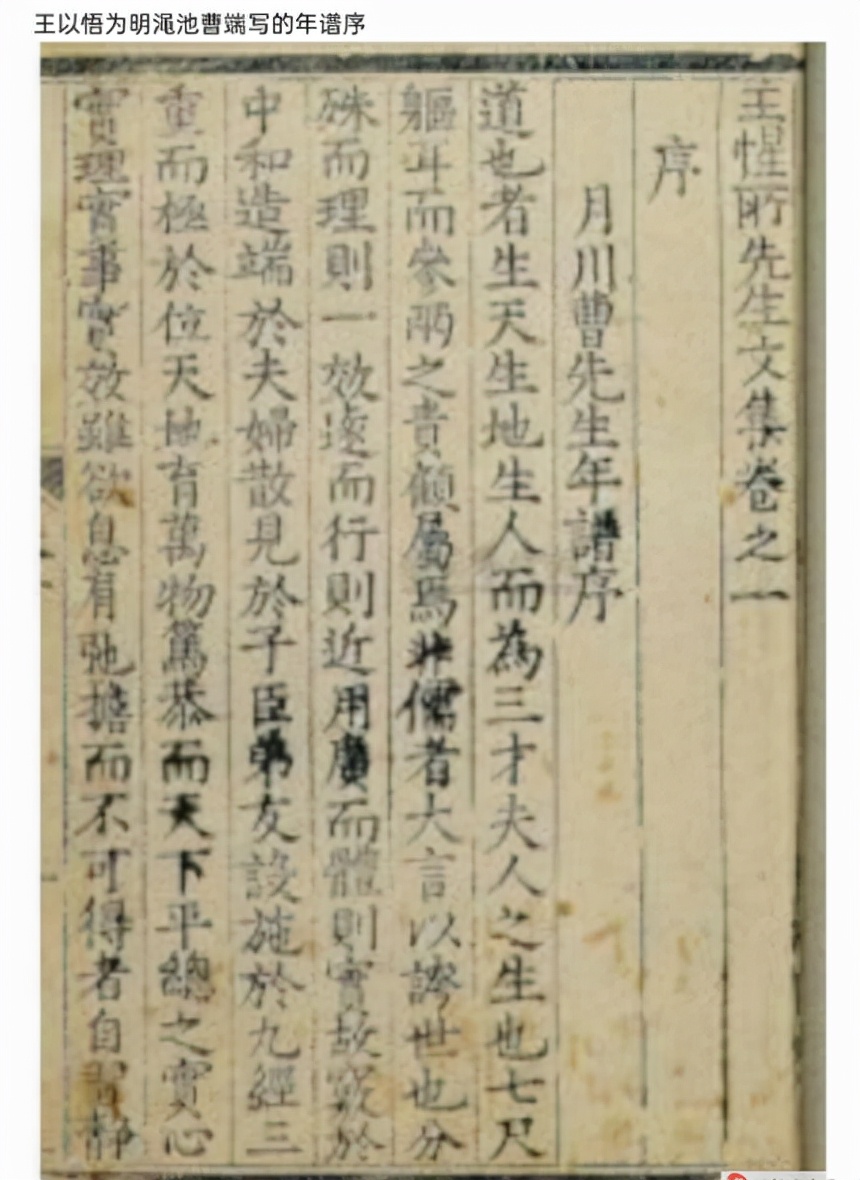 王以悟为明渑池曹端写的年谱序
王惺所先生文集卷之一
序
月川曹先生年譜序
道也者生天生地生人而為三才夫人之生也七尺
軀耳而參兩之貴顧屬焉非儒者大言以誇世也分
殊而理則一效遠而行則近用廣而體則實故竅於
中和造端於夫婦散見於子臣弟友設施於九經三
重而極於位天地育萬物篤恭而天下平總之實心
實理實事實效雖欲息有弛擔而不可得者自靜